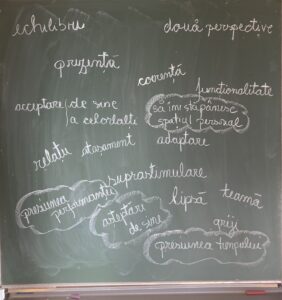 echilibru
două perspective
prezență
corectă
funcționalitate
acceptare de sine
a celorlalți
să îmi stăpânesc
spațiul personal
adaptare
relații
atașament
suprastimulare
presiunea
performanței
așteptări
de sine
lipsă
teamă
griji
presiunea timpului